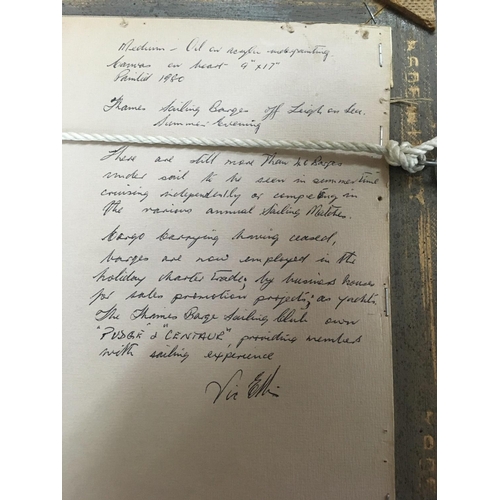 Medium - Oil on acrylic underpainting
Canvas on board 9" x 17"
Painted 1980
Thames Sailing Barges off Leigh on Sea.
Summer Evening
There are still more than 20 Barges
under sail to be seen in summertime
cruising independently or competing in
the various annual Sailing Matches.
Cargo Carrying having ceased,
barges are now employed in the
holiday charter trade; by business houses
for sales promotion projects; as yachts.
The Thames Barge Sailing Club own
"PUDGE" & "CENTAUR", providing members
with sailing experience
Vic Ellis